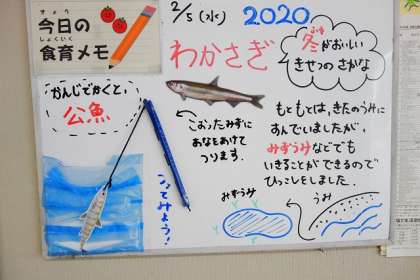 きょう
今日の
しょくいく
食育メモ
2/5(水) 2020
わかさぎ
ふゆ
冬がおいしい
きせつのさかな
かんじでかくと、
公魚
こおったみずに
あなをあけて
つります.
もともとは、きたのうみに
すんでいましたが、
みずうみなどでも
いきることができるので
ひっこしをしました.
つってみよう!
みずうみ
うみ